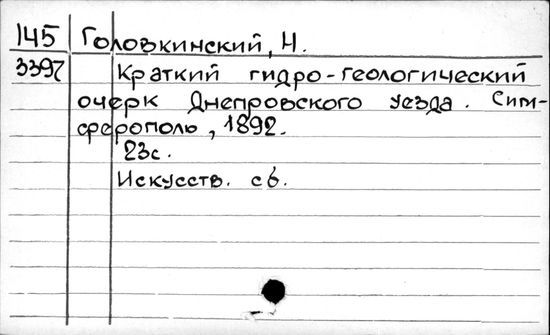 145 Головкинский, Н.
3397 Краткий гидро-геологический
очерк Днепровского уезда. Сим-
ферополь, 1892.
23с.
Искусств. сб.